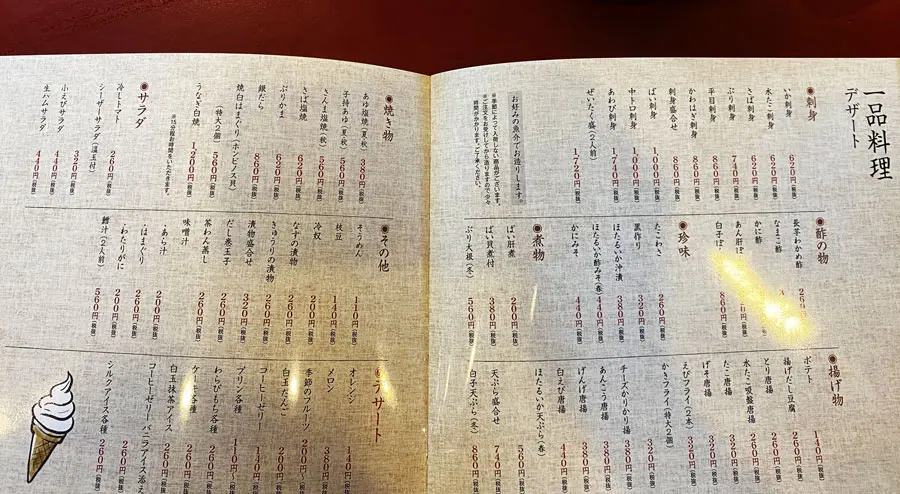 一品料理
デザート
◉刺身
いか刺身 620円(税抜)
水たこ刺身 620円(税抜)
さば刺身 520円(税抜)
ぶり刺身 740円(税抜)
平目刺身 860円(税抜)
かわはぎ刺身 860円(税抜)
刺身盛合せ 1,000円(税抜)
ばい刺身 1,000円(税抜)
中トロ刺身 1,000円(税抜)
あわび刺身 1,740円(税抜)
ぜいたく盛(2人前) 1,720円(税抜)
お好みの魚介でお造りします。
※季節によって入荷しない商品がございます。
※ご注文をお受けしてから造りますので少々
時間がかります。ご了承ください。
◉酢の物
長芋わかめ酢
なまこ酢
かに酢
あん肝ぽ
白子ぽ 860円(税抜)
◉珍味
たこわさ 260円(税抜)
黒作り 320円(税抜)
ほたるいか沖漬 380円(税抜)
ほたるいか酢みそ(春) 440円(税抜)
かにみそ 440円(税抜)
◉煮物
ばい肝煮 200円(税抜)
ばい貝煮付 380円(税抜)
ぶり大根(冬) 560円(税抜)
◉揚げ物
ポテト 140円(税抜)
揚げだし豆腐 200円(税抜)
とり唐揚 260円(税抜)
水たこ吸盤唐揚 260円(税抜)
たこ唐揚 320円(税抜)
げそ唐揚 320円(税抜)
えびフライ(2本) 320円(税抜)
かきフライ(特大2個)
チーズかりかり揚 320円
あんこう唐揚 380円(税抜)
げんげ唐揚 380円(税抜)
白えび唐揚 440円(税抜)
ほたるいか天ぷら(春) 560円(税抜)
天ぷら盛合せ 740円(税抜)
白子天ぷら(冬) 860円(税抜)
◉焼き物
あゆ塩焼(夏・秋) 380円(税抜)
子持あゆ(夏・秋) 560円(税抜)
さんま塩焼(秋) 560円(税抜)
さば塩焼 620円(税抜)
ぶりかま 620円(税抜)
銀だら 860円(税抜)
焼白はまぐり(ホンビノス貝)
(特大2個) 560円(税抜)
うなぎ白焼 1,200円(税抜)
※15分程お時間をいただきます。
◉サラダ
冷しトマト 260円(税抜)
シーザーサラダ(温玉付) 320円(税抜)
小えびサラダ 440円(税抜)
生ハムサラダ 440円(税抜)
◉その他
そうめん 110円(税抜)
枝豆 140円(税抜)
冷奴 200円(税抜)
なすの漬物 260円(税抜)
きゅうりの漬物 260円(税抜)
漬物盛合せ 320円(税抜)
だし巻玉子 260円(税抜)
茶わん蒸し 260円(税抜)
味噌汁
・あら汁 200円(税抜)
・はまぐり 260円(税抜)
・わたりがに 200円(税抜)
鱈汁(2人前) 560円(税抜)
◉デザート
オレンジ 140円(税抜)
メロン 380円(税抜)
季節のフルーツ 200円
白玉だんご 200円(税抜)
コーヒーゼリー 140円(税抜)
プリン各種 140円〜
わらびもち各種 260円(税抜)
ケーキ各種 260円(税抜)
白玉抹茶アイス 260円(税抜)
コーヒーゼリー バニラアイス添え 260円(税抜)
シルクアイス各種 260円(税抜)